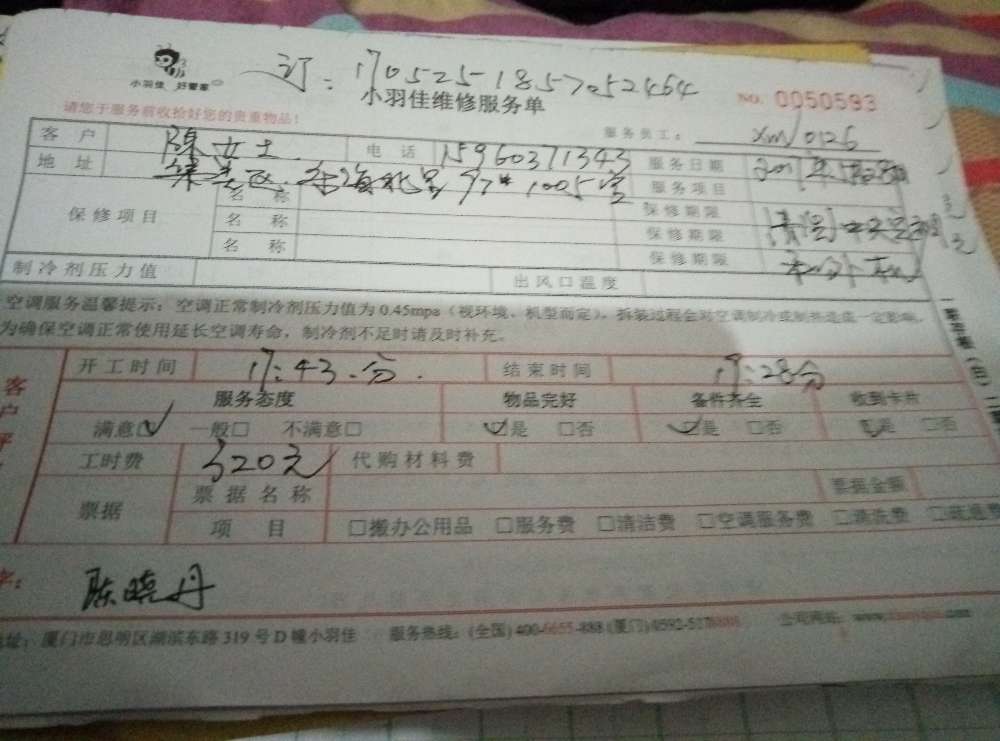 订：170525185705 2464
小羽佳 好管家
小羽佳维修服务单
NO. 0050593
请您于服务前收拾好您的贵重物品！
服务员工： xm/0126
客 户 陈女士 电 话 15960371343 服务日期
地 址 97# 1005室 服务项目
保修项目
名 称 保修期限
名 称 保修期限
名 称 保修期限
制冷剂压力值 出风口温度
空调服务温馨提示：空调正常制冷剂压力值为0.45mpa（视环境、机型而定），拆装过程会对空调制冷或制热造成一定影响，
为确保空调正常使用延长空调寿命，制冷剂不足时请及时补充。
开工时间 17:43分 结束时间 :28分
服务态度 物品完好 备件齐全 收到卡片
满意□ 一般□ 不满意□ □是 □否 □是 □否 □是 □否
工时费 320元 代购材料费
票据 票据名称 票据金额
项 目 □搬办公用品 □服务费 □清洁费 □空调服务费 □清洗费
客户
字： 陈晓丹
地址：厦门市思明区湖滨东路319号D幢小羽佳 服务热线：(全国)400-6655-888 (厦门)0592-5178888 公司网站：www.